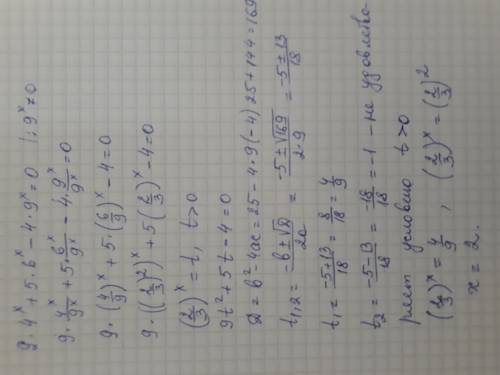 9·4ˣ+5·6ˣ-4·9ˣ=0 |:9ˣ≠0
9·4ˣ/9ˣ+5·6ˣ/9ˣ-4·9ˣ/9ˣ=0
9·(4/9)ˣ+5·(6/9)ˣ-4=0
9·((2/3)²)ˣ+5(2/3)ˣ-4=0
(2/3)ˣ=t, t>0
9t²+5t-4=0
D=b²-4ac=25-4·9(-4)25+144=169
t₁,₂=(-b±√D)/2a=(-5±√169)/(2·9)=(-5±13)/18
t₁=(-5+13)/18=8/18=4/9
t₂=(-5-13)/18=-18/18=-1 - не удовлетво-
ряет условию t>0
(2/3)ˣ=4/9, (2/3)ˣ=(2/3)²
x=2.